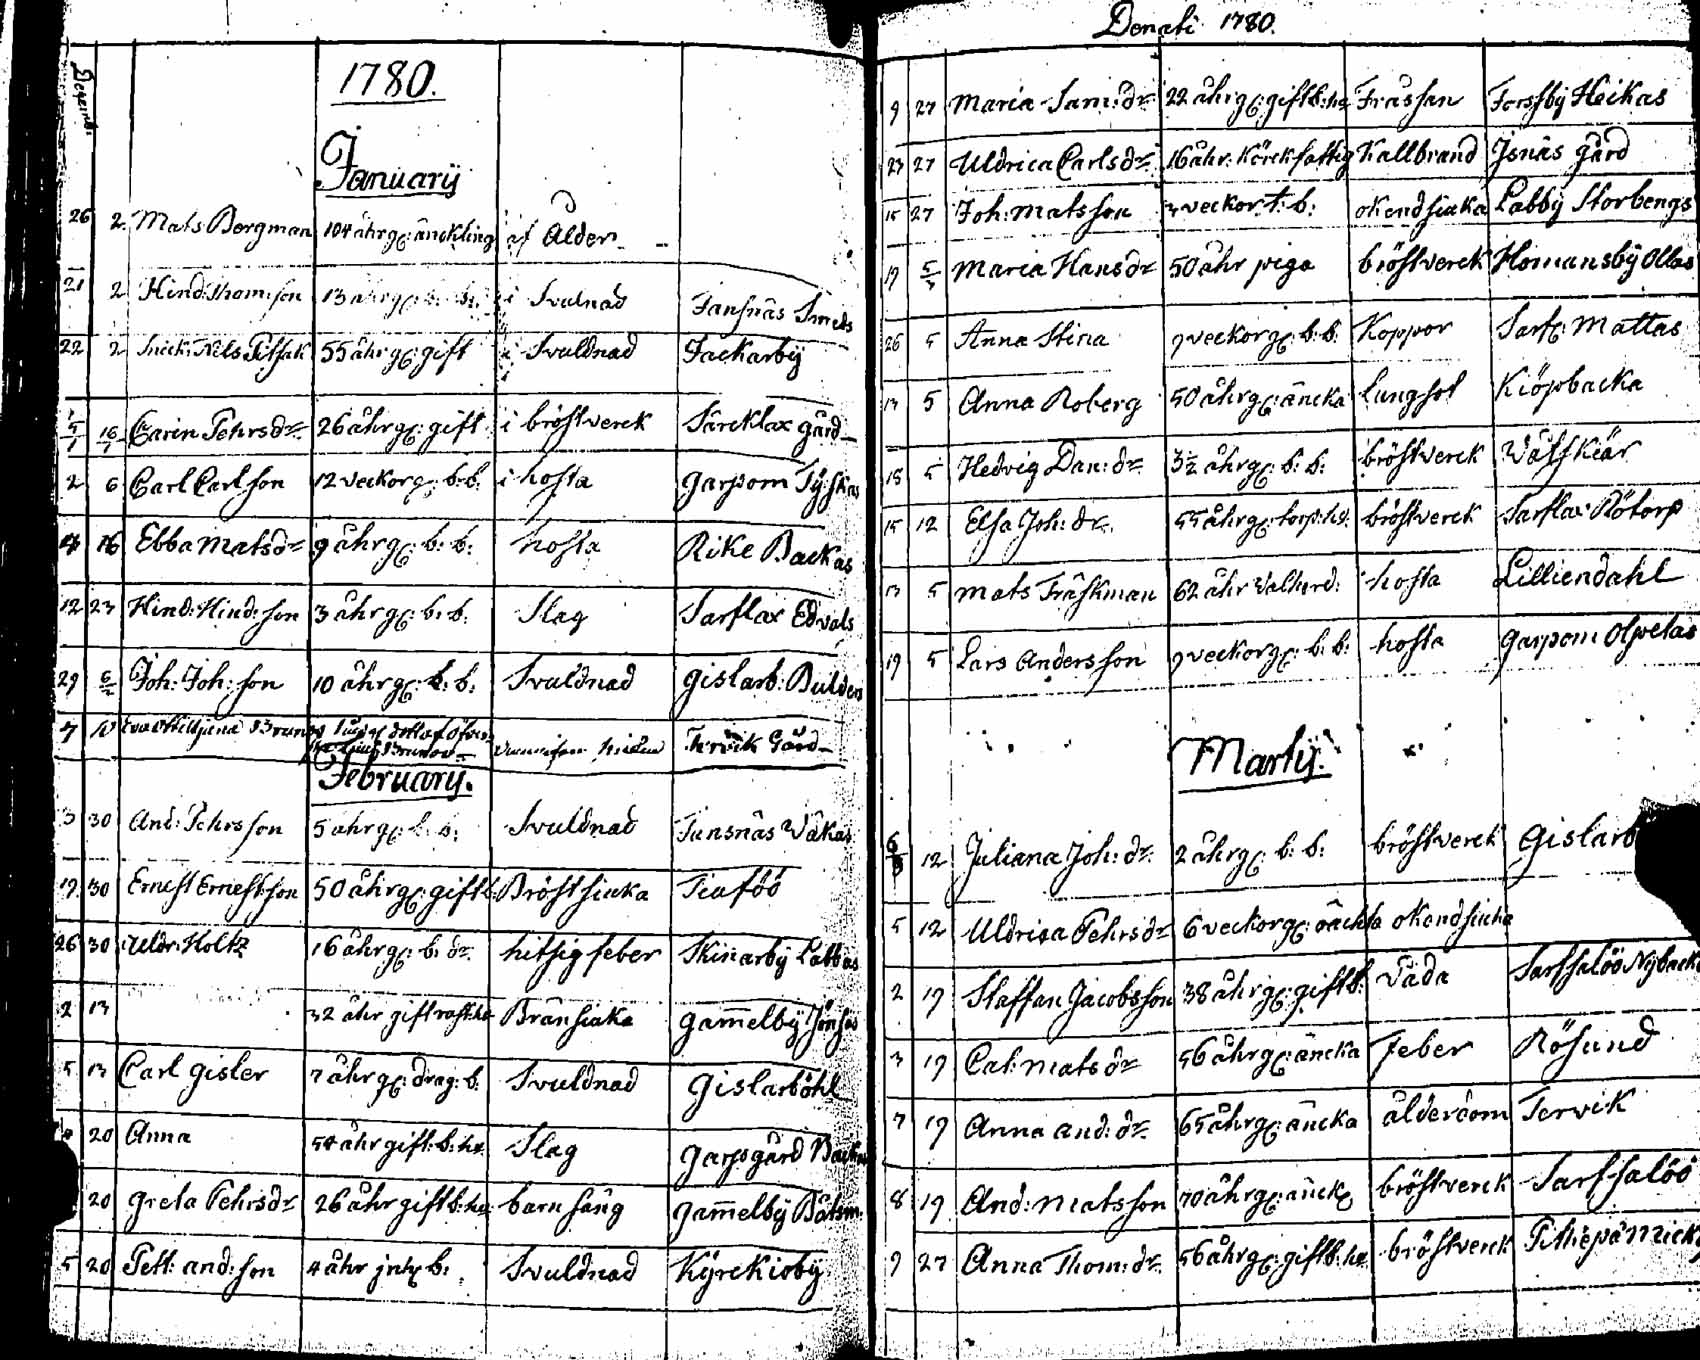 1780.
Januarij
26 2 Mats Bergman 104 åhrg: änckling af Ålder
21 2 Hind: Thom:son 13 åhrg: b: b: i Svulnad Tansnäs Smeds
22 2 Nils 55 åhrg: gift i Svuldnad Tackarby
5/1 16/1 Carin Pehrsdr 26 åhrg: gift i bröstverck Särcklax gård
2 6 Carl Carlson 12 veckorg: b:b: i hosta garpom Tyskas
16 Ebba Matsdr 9 åhrg: b: b: hosta Rike Backas
12 23 Hind: Hind: son 3 åhrg: b: b. Slag Sarflax Edvals
29 6/2 Joh: Joh: son 10 åhrg: b: b: Svuldnad gislarb: Bulders
7 Tervik Gård
February.
3 30 And: Pehrsson 5 åhrg: b: b: Svuldnad Tansnäs Wåkas
19 30 Ernest Ernestson 50 åhrg: gift b: Bröstsiuka Tiuföö
26 30 Uldr: Holtz 16 åhrg: b: dr. hitsig feber Skinarby Labbas
2 13 32 åhr gift Bränsiuka gam̄elby Jönsas
5 13 Carl gisler 7 åhrg: drag: b: Svuldnad Gislarböhl
20 Anna 54 åhr gift: b: hu. Slag garpgård
20 Greta Pehrsdr 26 åhr gift b: hu. barnsäng gam̄elby Båtsm.
5 20 Pett: and: son 4 åhr b: Svuldnad Kyrckioby
Denati 1780.
9 27 Maria Sam: dr 22 åhrg: gift b: hu Fråssan Forssby Heikas
23 27 Uldrica Carlsdr 16 åhr: Körckfattig Kallbrand Isnäs gård
15 27 Joh: matsson 3 veckor. t: b: okendsiuka Labby Storbengs
19 5/3 Maria Hansdr 50 åhr piga bröstverck Homansby Ollas
26 5 Anna Stina 9 veckorg: b: b: Koppor Sarf: Mattas
13 5 Anna Roberg 50 åhrg: äncka lungsot Kiöpbacka
18 5 Hedvig Dan: dr. 3½ åhrg: b: b: bröstverck Wåtskiär
15 12 Elsa Joh: dr. 55 åhrg: torp: hu. bröstverck Sarflax Rötorp
13 5 mats Träskman 62 åhr Valherd: hosta Lilliendahl
19 5 Lars Andersson 9 veckorg: b: b: hosta garpom Olpetas
Martij.
6/3 12 Juliana Joh: dr. 2 åhrg: b: b: bröstverck Gislarb
5 12 Uldrica Pehrsdr 6 veckorg: oächta okendsiucka
2 19 Staffan Jacobsson 38 åhrg: gift b: Våda Sarfsalöö Nybacka
3 19 Cat: matsdr 56 åhrg: äncka Feber Rösund
7 19 Anna And: dr. 65 åhrg: äncka ålderdom Tervik
8 19 And: Matsson 70 åhrg: änck. bröstverck Sarfsalöö
9 27 Anna Thom: dr. 56 åhrg: gift b: hu. bröstverck